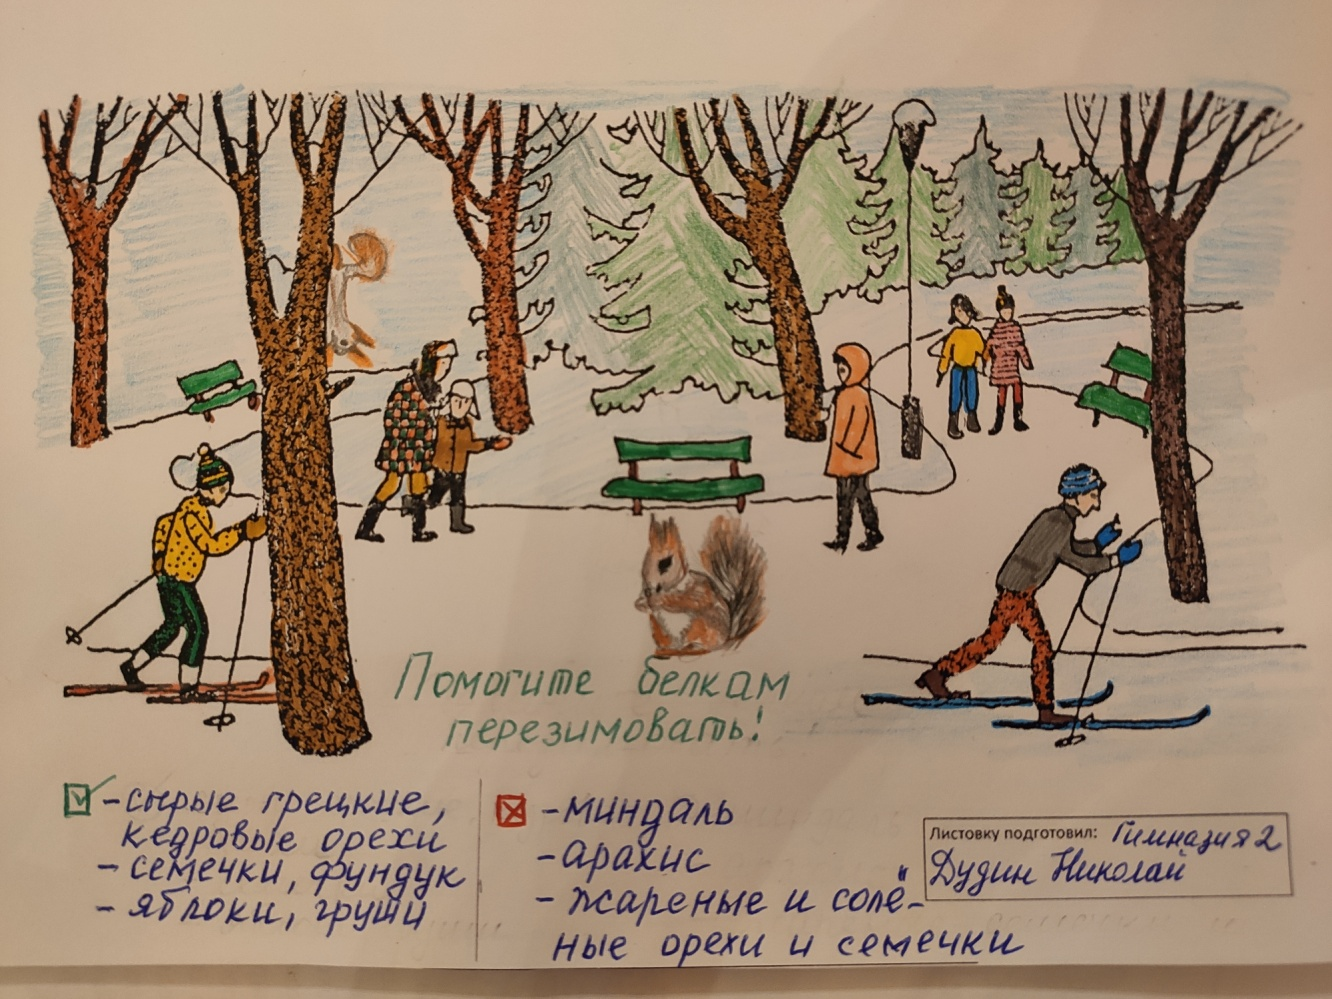 Помогите белкам
перезимовать!
-сырые грецкие,
кедровые орехи
-семечки, фундук
-яблоки, груши
-миндаль
-арахис
-жареные и солё-
ные орехи и семечки
Листовку подготовил: Гимназия 2
Дудин Николай